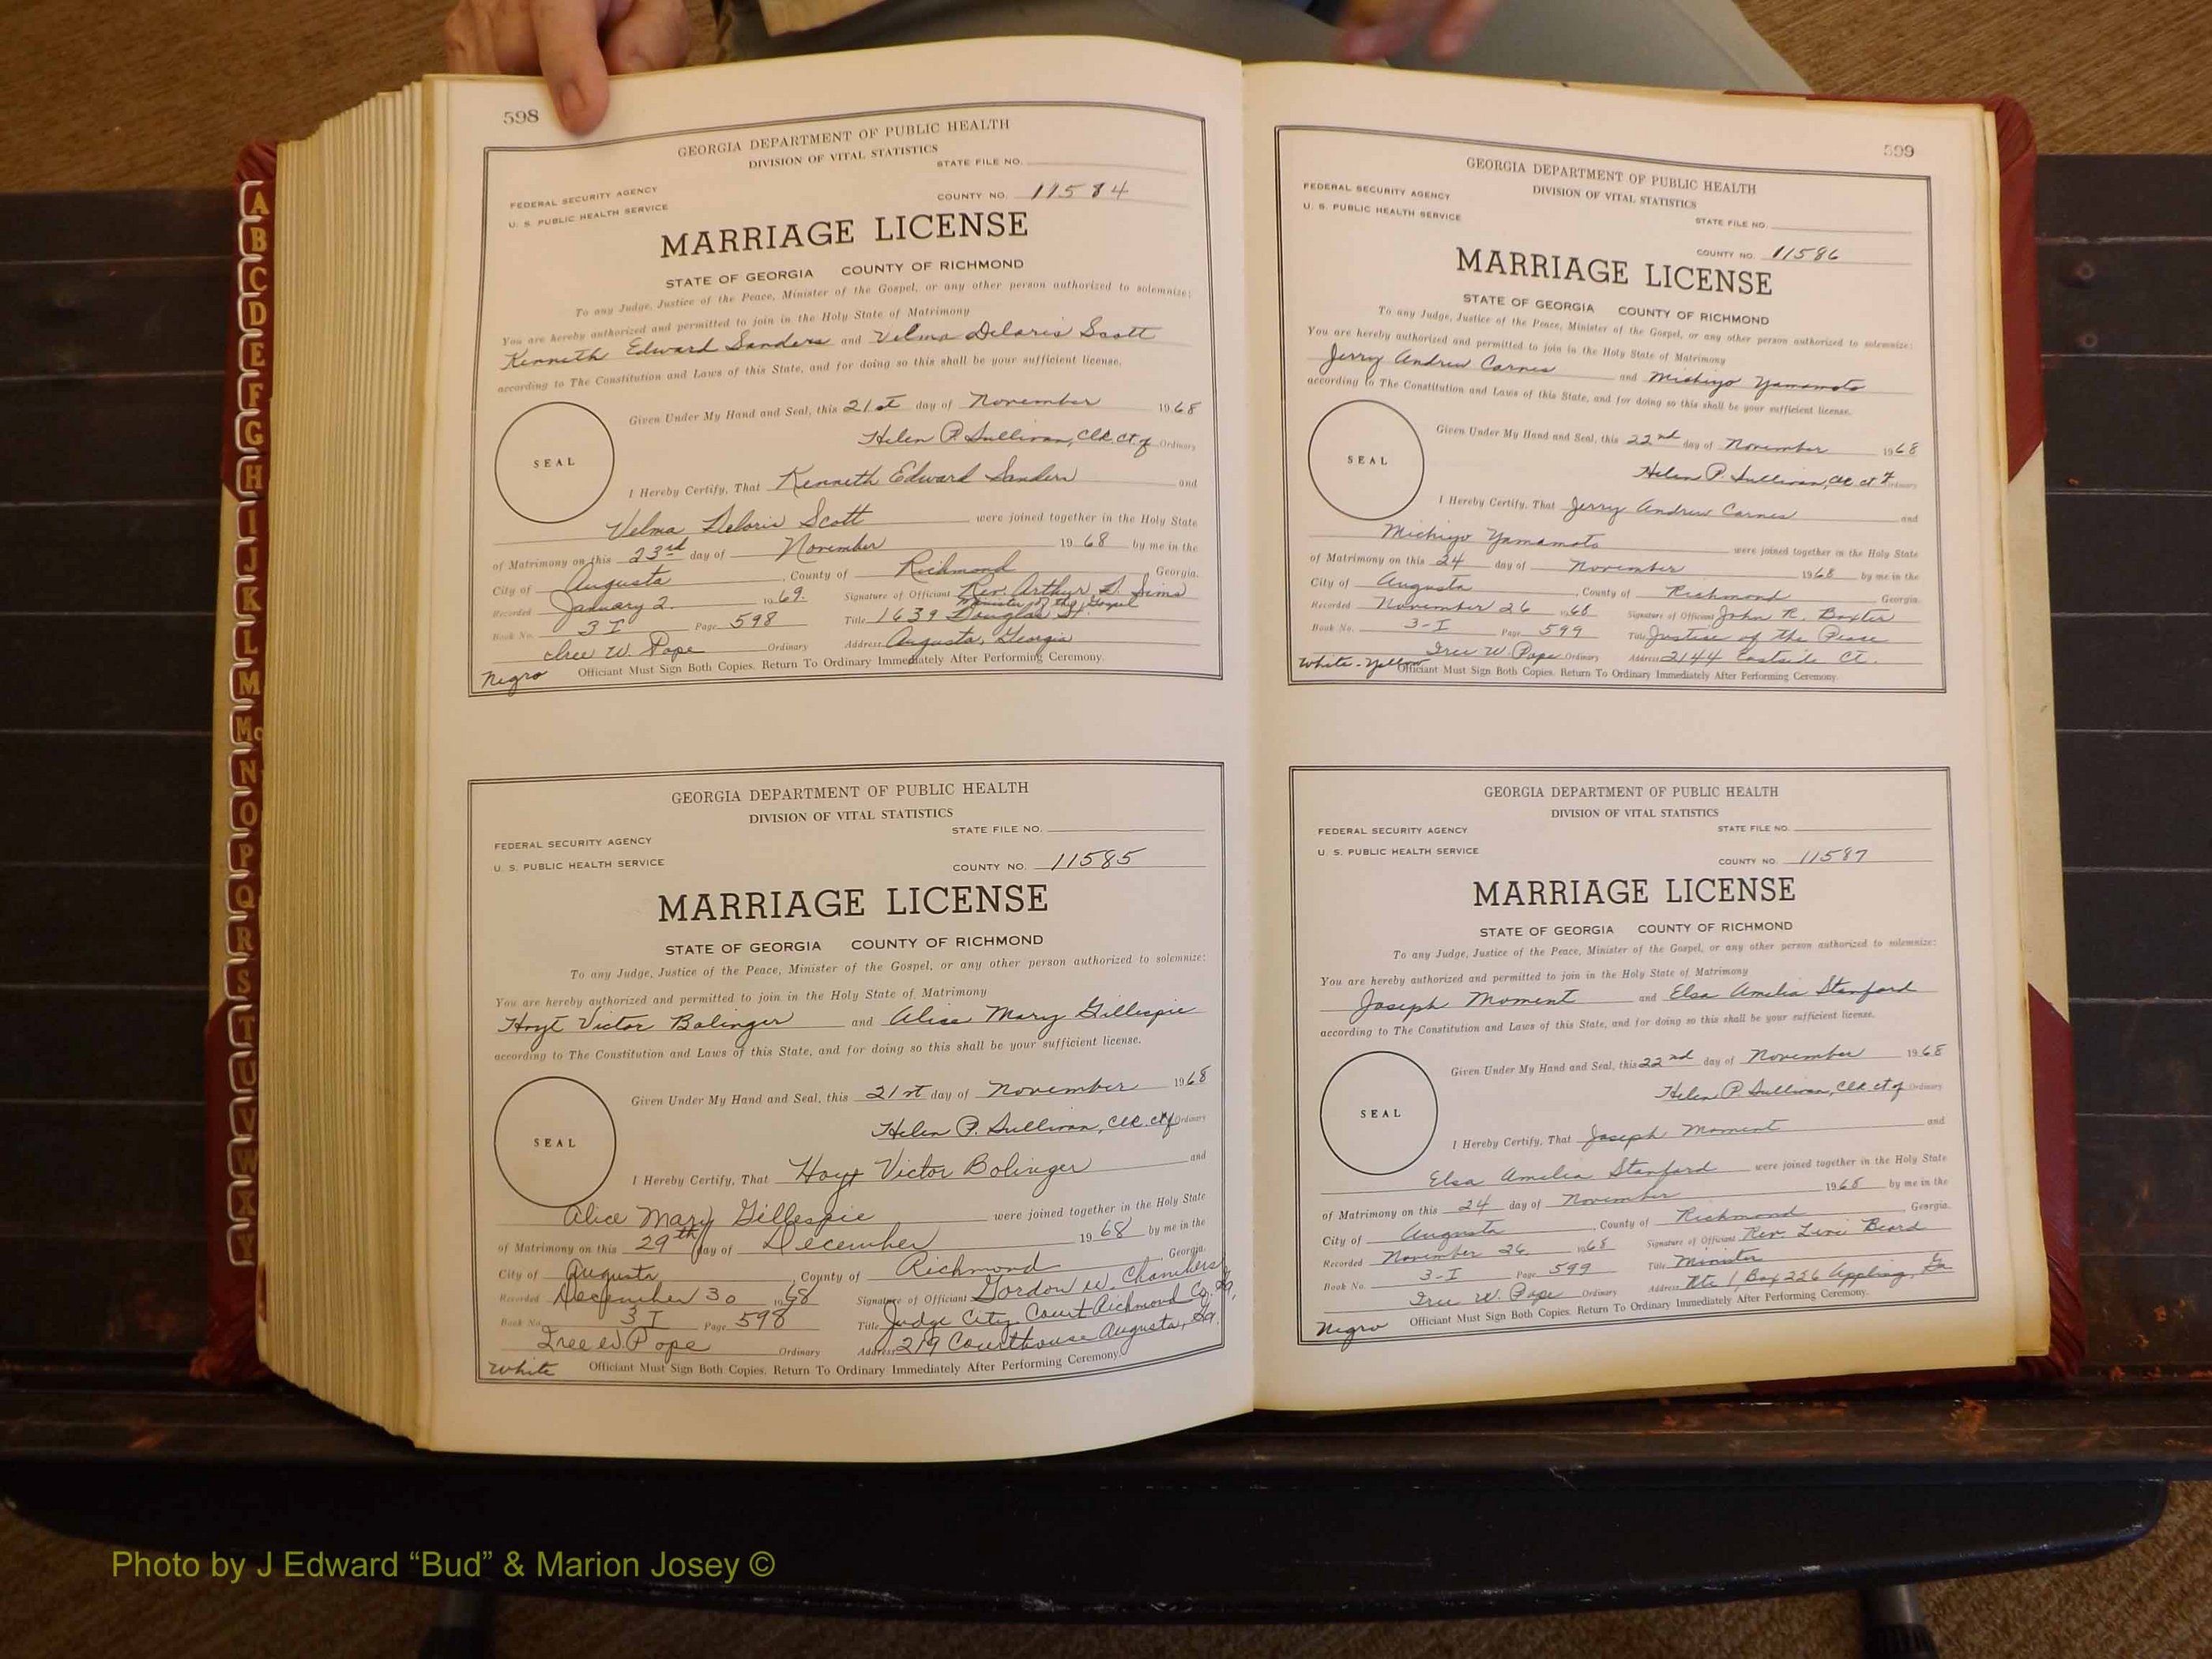 A
B
C
D
E
F
G
H
I
J
K
L
M
Mc
N
O
P
Q
R
S
T
U
V
W
X
Y
598
GEORGIA DEPARTMENT OF PUBLIC HEALTH
DIVISION OF VITAL STATISTICS
STATE FILE NO.
FEDERAL SECURITY AGENCY
U. S. PUBLIC HEALTH SERVICE
COUNTY NO. 11584
MARRIAGE LICENSE
STATE OF GEORGIA COUNTY OF RICHMOND
To any Judge, Justice of the Peace, Minister of the Gospel, or any other person authorized to solemnize:
You are hereby authorized and permitted to join in the Holy State of Matrimony
Kenneth Edward Sanders and Velma Deloris Scott
according to The Constitution and Laws of this State, and for doing so this shall be your sufficient license.
Given Under My Hand and Seal, this 21st day of November 1968
Helen P. Sullivan, Clk. Ct. of Ordinary
SEAL
I Hereby Certify, That Kenneth Edward Sanders and
Velma Deloris Scott were joined together in the Holy State
of Matrimony on this 23rd day of November 1968 by me in the
City of Augusta, County of Richmond Georgia.
Recorded January 2. 1969. Signature of Officiant Rev. Arthur D. Sims
Minister of the Gospel
Book No. 3 I Page 598 Title 1639 Douglas St.
Iree W. Pope Ordinary Address Augusta, Georgia
Negro Officiant Must Sign Both Copies. Return To Ordinary Immediately After Performing Ceremony.
GEORGIA DEPARTMENT OF PUBLIC HEALTH
DIVISION OF VITAL STATISTICS
STATE FILE NO.
FEDERAL SECURITY AGENCY
U. S. PUBLIC HEALTH SERVICE
COUNTY NO. 11585
MARRIAGE LICENSE
STATE OF GEORGIA COUNTY OF RICHMOND
To any Judge, Justice of the Peace, Minister of the Gospel, or any other person authorized to solemnize:
You are hereby authorized and permitted to join in the Holy State of Matrimony
Hoyt Victor Bolinger and Alice Mary Gillespie
according to The Constitution and Laws of this State, and for doing so this shall be your sufficient license.
Given Under My Hand and Seal, this 21st day of November 1968
Helen P. Sullivan, Clk. Ct. of Ordinary
SEAL
I Hereby Certify, That Hoyt Victor Bolinger and
Alice Mary Gillespie were joined together in the Holy State
of Matrimony on this 29th day of December 1968 by me in the
City of Augusta, County of Richmond Georgia.
Recorded December 30 1968 Signature of Officiant Gordon W. Chambers
Book No. 3 I Page 598 Title Judge City Court Richmond Co. Ga.
Iree W. Pope Ordinary Address 219 Courthouse Augusta, Ga.
White Officiant Must Sign Both Copies. Return To Ordinary Immediately After Performing Ceremony.
599
GEORGIA DEPARTMENT OF PUBLIC HEALTH
DIVISION OF VITAL STATISTICS
FEDERAL SECURITY AGENCY
U. S. PUBLIC HEALTH SERVICE
STATE FILE NO.
COUNTY NO. 11586
MARRIAGE LICENSE
STATE OF GEORGIA COUNTY OF RICHMOND
To any Judge, Justice of the Peace, Minister of the Gospel, or any other person authorized to solemnize:
You are hereby authorized and permitted to join in the Holy State of Matrimony
Jerry Andrew Carnes and Michiyo Yamamoto
according to The Constitution and Laws of this State, and for doing so this shall be your sufficient license.
Given Under My Hand and Seal, this 22nd day of November 1968
Helen P. Sullivan, Clk. Ct. of Ordinary
SEAL
I Hereby Certify, That Jerry Andrew Carnes and
Michiyo Yamamoto were joined together in the Holy State
of Matrimony on this 24 day of November 1968 by me in the
City of Augusta, County of Richmond Georgia.
Recorded November 26 1968 Signature of Officiant John R. Baxter
Book No. 3-I Page 599 Title Justice of the Peace
Iree W. Pope Ordinary Address 2144 Eastside Ct.
White-Yellow Officiant Must Sign Both Copies. Return To Ordinary Immediately After Performing Ceremony.
GEORGIA DEPARTMENT OF PUBLIC HEALTH
DIVISION OF VITAL STATISTICS
FEDERAL SECURITY AGENCY
STATE FILE NO.
U. S. PUBLIC HEALTH SERVICE
COUNTY NO. 11587
MARRIAGE LICENSE
STATE OF GEORGIA COUNTY OF RICHMOND
To any Judge, Justice of the Peace, Minister of the Gospel, or any other person authorized to solemnize:
You are hereby authorized and permitted to join in the Holy State of Matrimony
Joseph Moment and Elsa Amelia Stanford
according to The Constitution and Laws of this State, and for doing so this shall be your sufficient license.
Given Under My Hand and Seal, this 22nd day of November 1968
Helen P. Sullivan, Clk. Ct. of Ordinary
SEAL
I Hereby Certify, That Joseph Moment and
Elsa Amelia Stanford were joined together in the Holy State
of Matrimony on this 24 day of November 1968 by me in the
City of Augusta, County of Richmond Georgia.
Recorded November 26 1968 Signature of Officiant Rev. Beard
Book No. 3-I Page 599 Title Minister
Iree W. Pope Ordinary Address Rte 1, Box 226 Appling, Ga
Negro Officiant Must Sign Both Copies. Return To Ordinary Immediately After Performing Ceremony.
Photo by J Edward “Bud” & Marion Josey ©